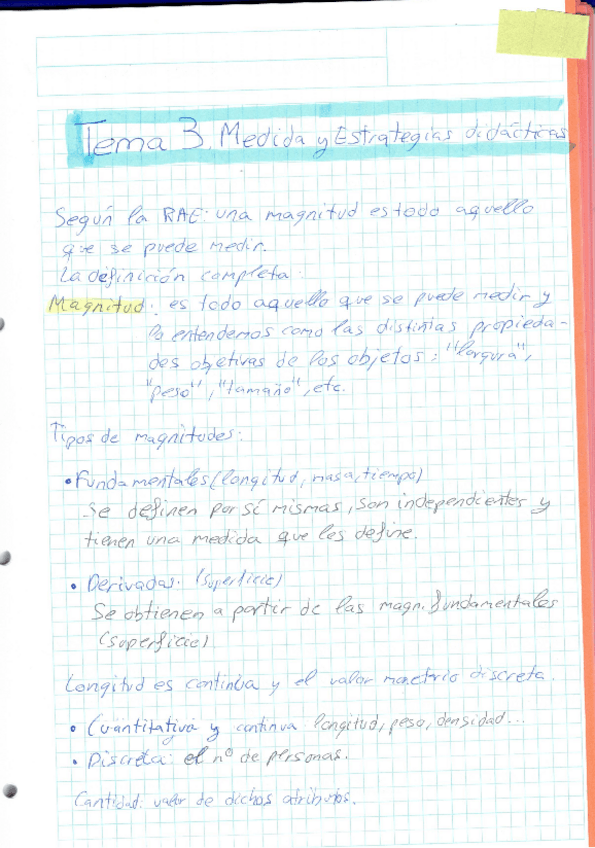 Tema 3. Medida y Estrategias didácticas
Según la RAE: una magnitud es todo aquello
que se puede medir.
La definición completa:
Magnitud: es todo aquello que se puede medir y
lo entendemos como las distintas propieda-
des objetivas de los objetos: "largura",
"peso", "tamaño", etc.
Tipos de magnitudes:
• Fundamentales (longitud, masa, tiempo)
Se definen por sí mismas, son independientes y
tienen una medida que las define.
• Derivadas. (superficie)
Se obtienen a partir de las magn. fundamentales
(superficie)
Longitud es continua y el valor discreta.
• Cuantitativa y continua longitud, peso, densidad...
• Discreta: el nº de personas.
Cantidad: valor de dichos atributos.